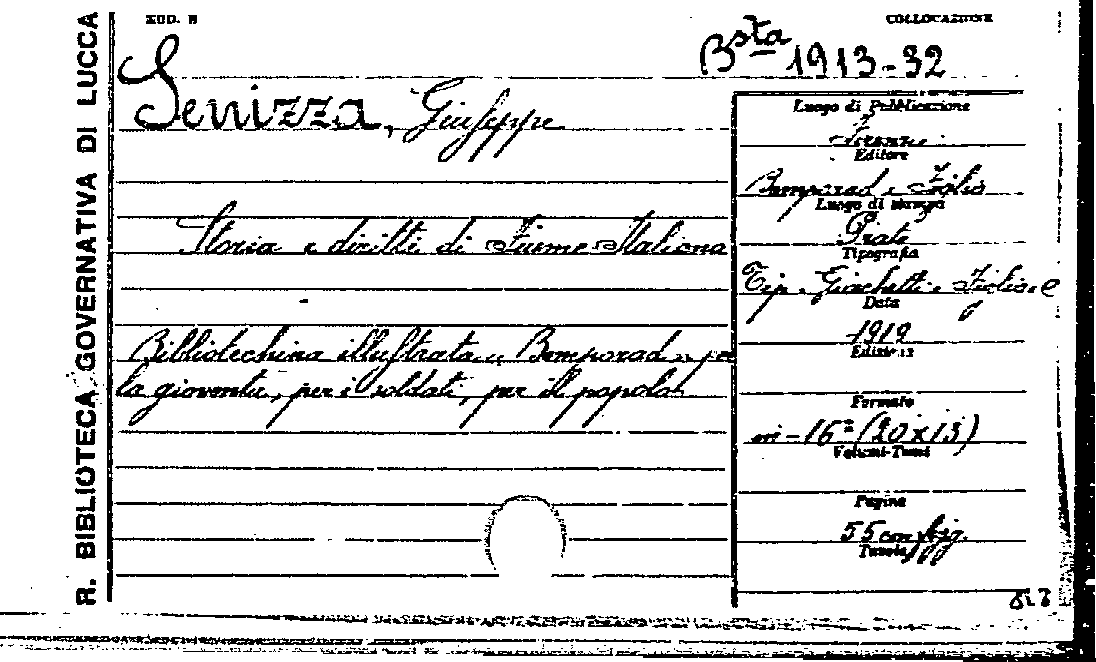 R. BIBLIOTECA GOVERNATIVA DI LUCCA
MOD. B
COLLOCAZIONE
Bsta 1913-32
Senizza, Giuseppe
Storia e diritti di Fiume Italiana
Bibliotechina illustrata „ Bemporad „ pe
la gioventù, per i soldati, per il popolo
Luogo di Pubblicazione
Firenze
Editore
Bemporad e Figlio
Luogo di stampa
Prato
Tipografia
Tip. Giachetti Figlio e C
Data
1919
Edizione
Formato
in-16º (20x13)
Volumi-Tomi
Pagine
55 con fig.
Tavole